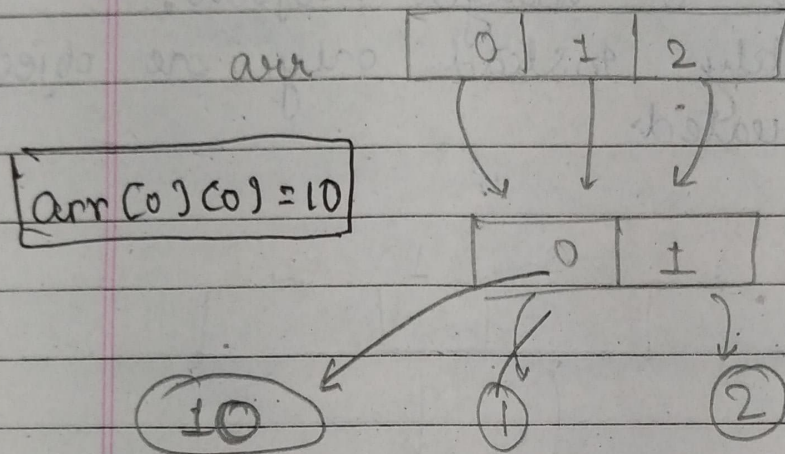 arr 0 1 2
arr[0][0] = 10
0 1
10 1 2